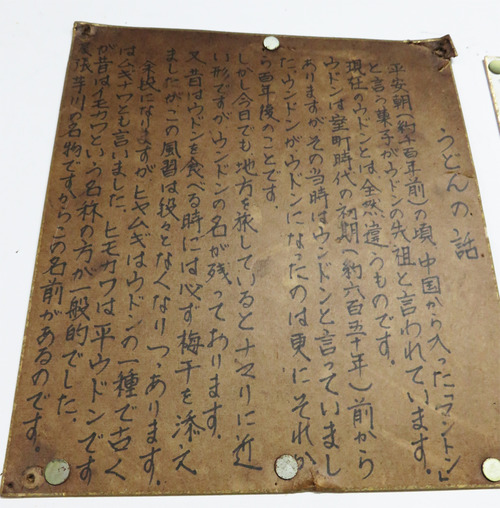 うどんの話.
平安朝(約千百年前)の頃中国から入った「コントン」
と言う菓子がウドンの先祖と言われています。
現在のウドンとは全然違うものです。
ウドンは室町時代の初期(約六百五十年)前から
ありますがその当時はウンドンと言っていまし
たウンドンがウドンになったのは更にそれか
ら百年後のことです。
しかし今日でも地方を旅しているとナマリに近
い形ですがウンドンの名が残っております。
又昔はウドンを食べる時には必ず梅干を添え
ましたがこの風習は段々となくなりつゝあります。
余談になりますがヒヤムギはウドンの一種で古く
はムギナワとも言いました ヒモカワは平ウドンです
が昔はイモカワという名称の方が一般的でした。
尾張芋川の名物ですからこの名前があるのです。